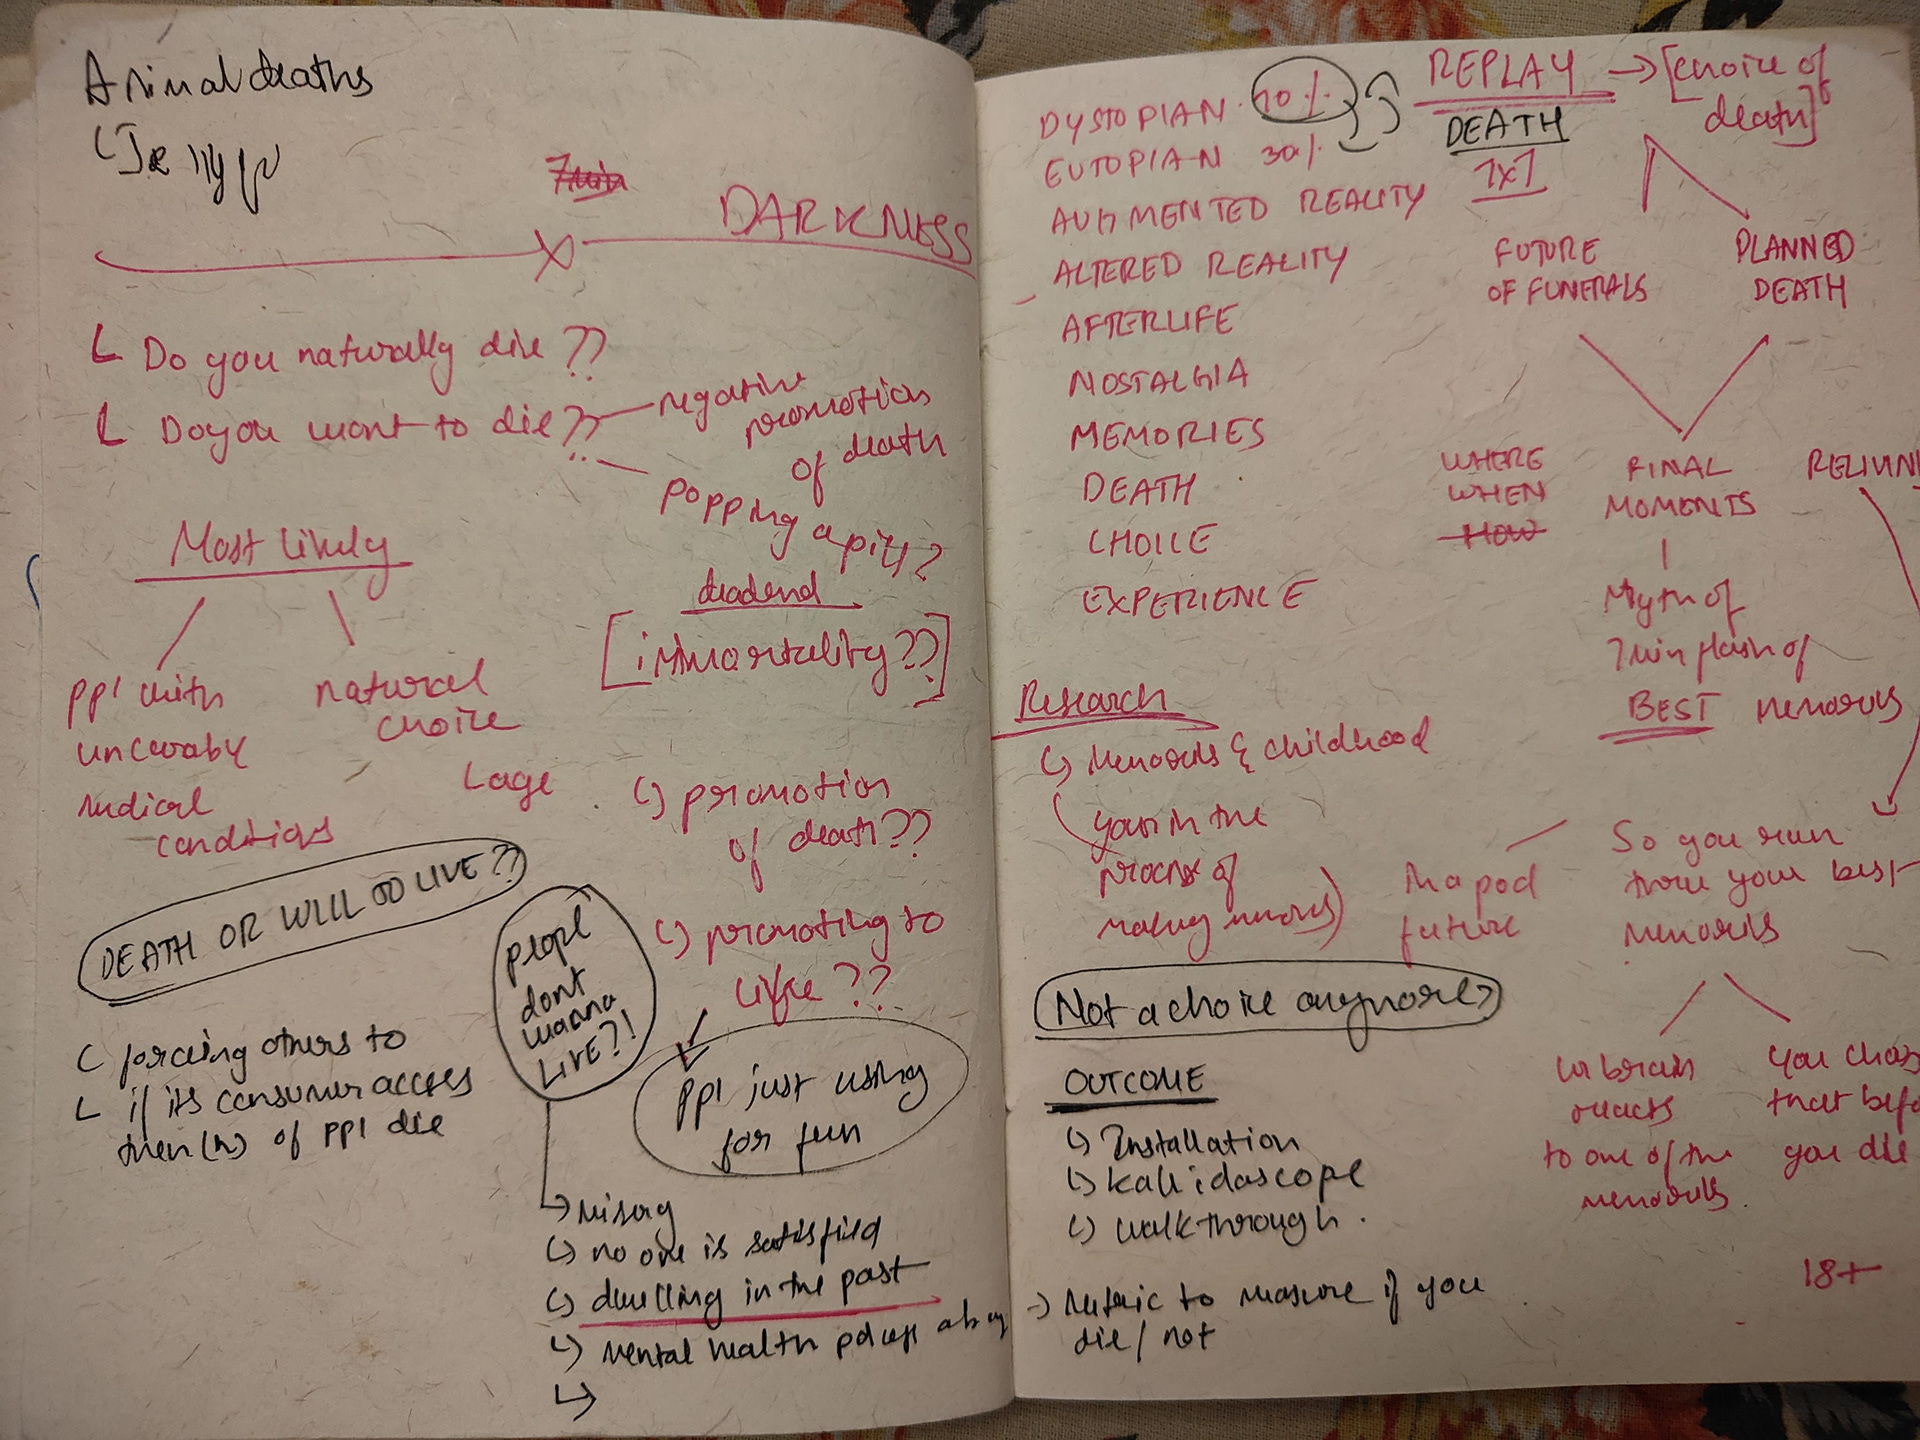 Animal deaths
7min
DARKNESS
Do you naturally die??
Do you want to die??
negative
promotion
of death
popping a pill?
Most likely
deadend
[immortality??]
ppl with
uncurable
medical
conditions
natural
choice
age
promotion
of death??
promoting to
life??
DEATH OR WILL TO LIVE??
people
dont
wanna
LIVE?!
ppl just using
for fun
forceing others to
if its consumer access
then (n) of ppl die
misery
no one is satisfied
dwelling in the past
mental health
DYSTOPIAN 70%
EUTOPIAN 30%
AUGMENTED REALITY
ALTERED REALITY
AFTERLIFE
NOSTALGIA
MEMORIES
DEATH
CHOICE
EXPERIENCE
REPLAY → [choice of
death]
DEATH
1x1
FUTURE
OF FUNERALS
PLANNED
DEATH
WHERE
WHEN
HOW
FINAL
MOMENTS
RELIVIN
Myth of
7min flash of
BEST memories
Research
Memories & childhood
process of
making memories)
In a pod
future
So you run
your best
memories
Not a choice anymore?
OUTCOME
Installation
kaleidoscope
walkthrough.
→ Metric to measure if you
die/not
brain
reacts
to one of the
memories.
you
that
you die
18+